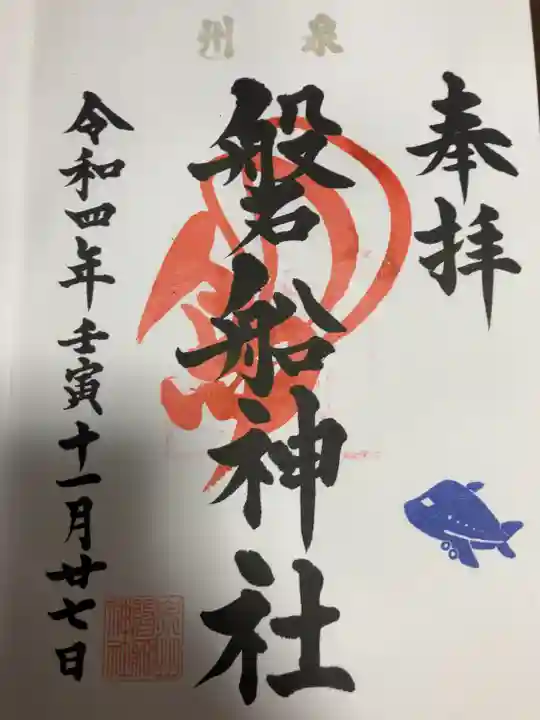 奉拝
磐船神社
令和四年壬寅十一月廿七日